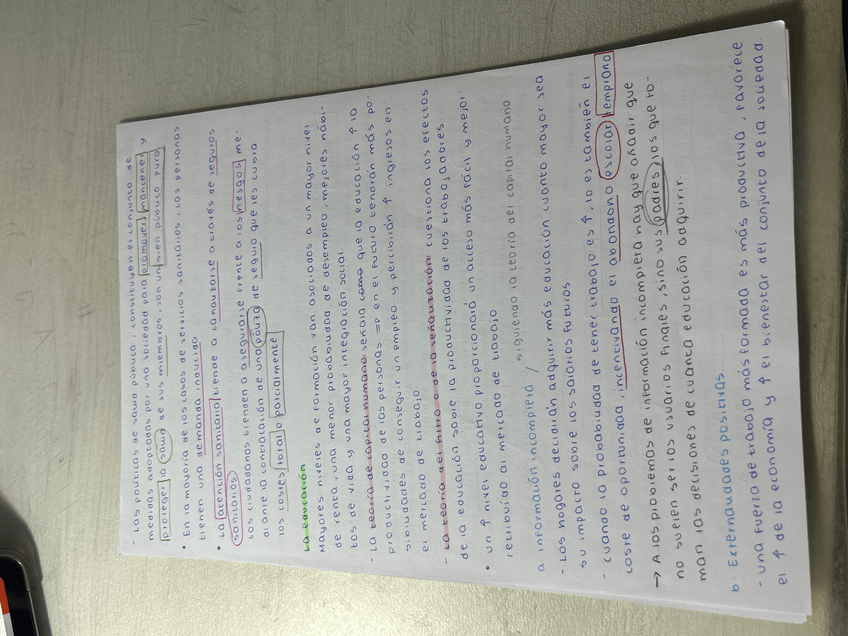 - Las políticas de salud pública, constituyen el conjunto de
medidas adoptadas por una sociedad para promover, mantener y
proteger la salud de sus miembros, son un bien público puro.
• En la mayoría de los casos de servicios sanitarios, las personas
tienen una demanda inducida
• La atención sanitaria tiende a canalizarse a través de seguros
sanitarios.
Los ciudadanos tienden a asegurarse frente a los riesgos me-
diante la contratación de una póliza de seguro que les cubra
los costes total o parcialmente
La educación
Mayores niveles de formación van asociados a un mayor nivel
de renta, una menor probabilidad de desempleo, mejores hábi-
tos de vida y una mayor integración social
- La teoría de capital humano señala que la educación ↑ la
productividad de las personas => en el futuro tendrán más po-
sibilidades de conseguir un empleo y percibirán ↑ ingresos en
el mercado de trabajo
- La teoría del filtro o de la señalización cuestiona los efectos
de la educación sobre la productividad de los trabajadores.
• un ↑ nivel educativo proporcionará un acceso más fácil y mejor
retribuido al mercado de trabajo
a información incompleta / siguiendo la teoría del capital humano
- Los hogares decidirán adquirir más educación cuanto mayor sea
su impacto sobre los salarios futuros
- Cuando la probabilidad de tener trabajo es ↑, lo es también el
coste de oportunidad, incentivando el abandono escolar temprano
→ A los problemas de información incompleta hay que añadir que
no suelen ser los usuarios finales, sino sus padres, los que to-
man las decisiones de cuanta educación adquirir.
b. Externalidades positivas.
- una fuerza de trabajo más formada es más productiva, favorece
el ↑ de la economía y ↑ el bienestar del conjunto de la sociedad.